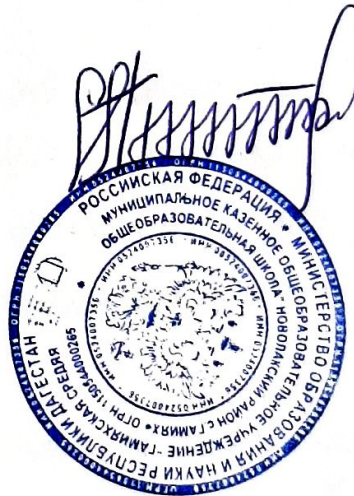 РОССИЙСКАЯ ФЕДЕРАЦИЯ * МИНИСТЕРСТВО ОБРАЗОВАНИЯ И НАУКИ РЕСПУБЛИКИ ДАГЕСТАН
МУНИЦИПАЛЬНОЕ КАЗЕННОЕ ОБЩЕОБРАЗОВАТЕЛЬНОЕ УЧРЕЖДЕНИЕ "ГАМИЯХСКАЯ СРЕДНЯЯ
ОБЩЕОБРАЗОВАТЕЛЬНАЯ ШКОЛА" НОВОЛАКСКИЙ РАЙОН С.ГАМИЯХ * ОГРН 1150544000265
ИНН 0524007356